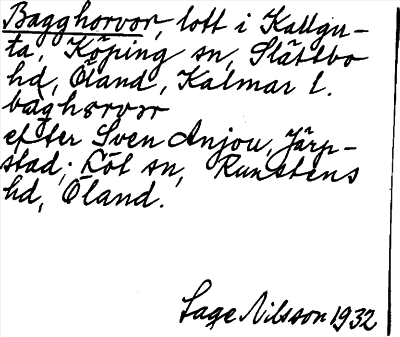 Bagghorvor, lott i Kallgu-
ta, Köping sn, Slättbo
hd, Öland, Kalmar l.
baghorvor
efter Sven Anjou, Järp-
stad; Löt sn, Runstens
hd, Öland.
Sage Nilsson 1932